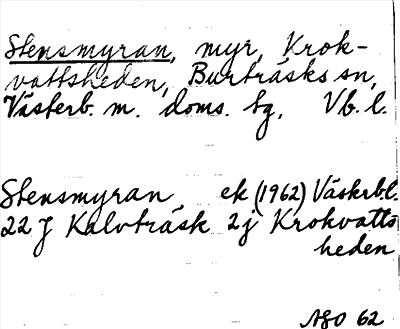 Stensmyran, myr, Krok-
vattsheden, Burträsks sn,
Västerb. m. doms. tg, Vb. l.
Stensmyran ek (1962) Västerb.l.
22 J Kalvträsk 2j Krokvatts
heden
NSO 62